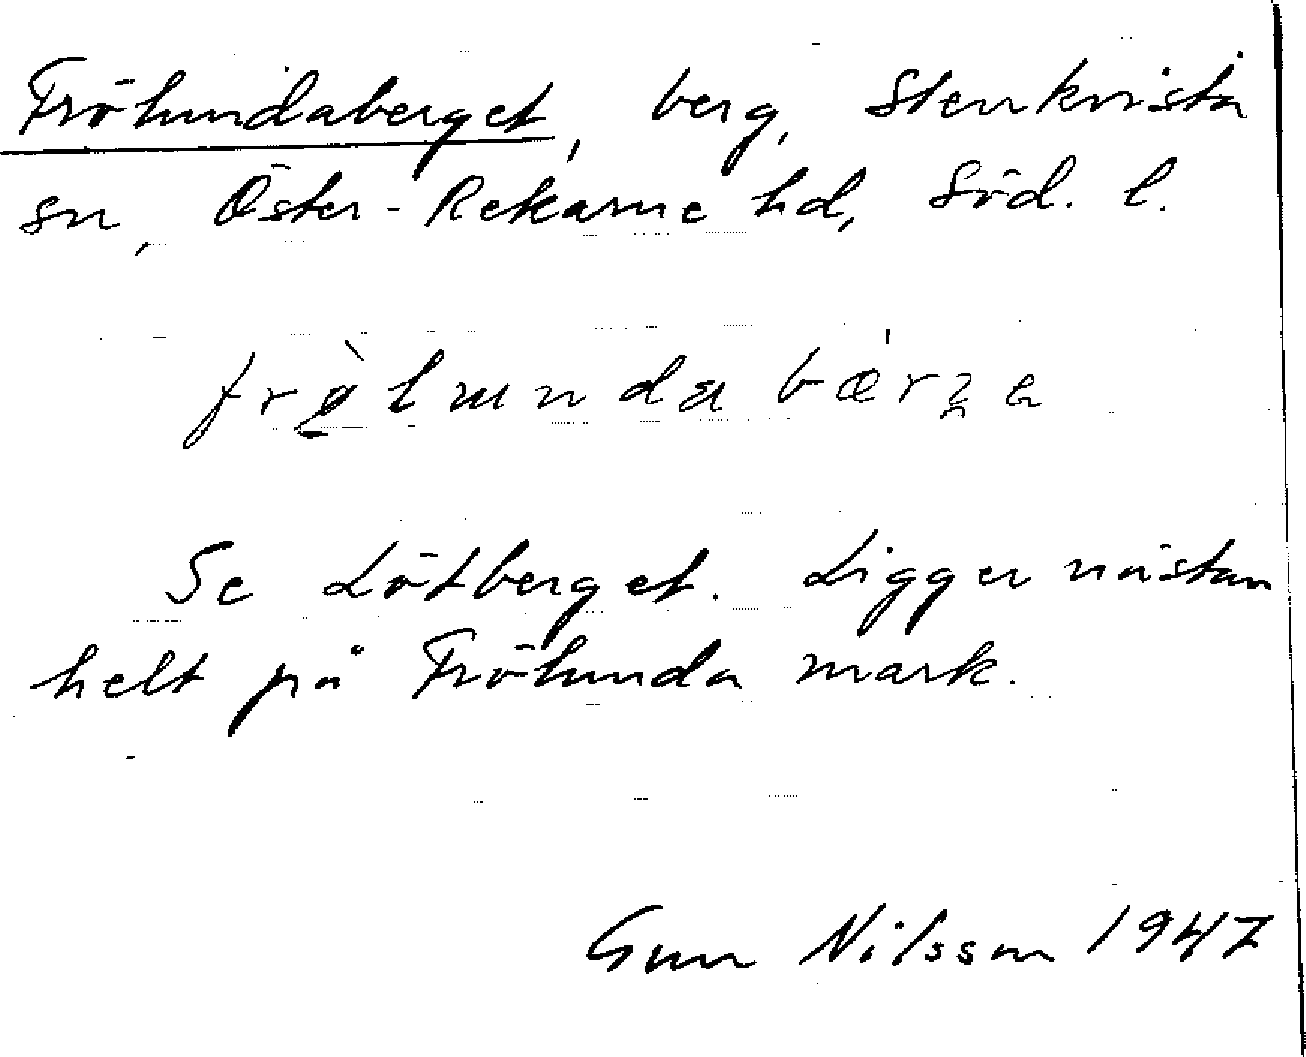 Frölundaberget, berg, Stenkvista
sn, Öster-Rekarne hd, Söd. l.
Se Lötberget. Ligger nästan
helt på Frölunda mark.
Gun Nilsson 1947